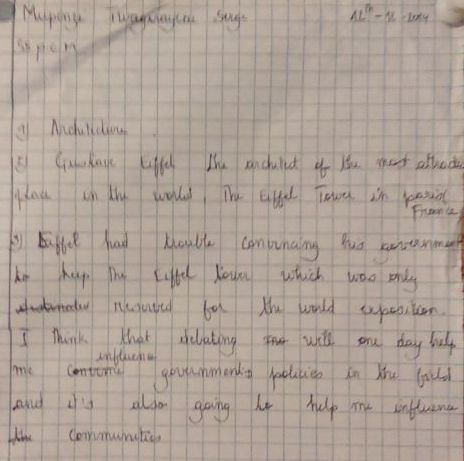 Serge 12th - 12 - 2014
S5 P C M
a) Architecture
b) Gustave Eiffel the architect of the most attractive
place in the world, The Eiffel Tower in paris
France
c) Eiffel had trouble convincing his government
to keep the Eiffel tower which was only
reserved for the world exposition.
I think that debating will one day help
influence
me convince governments policies in the field
and it's also going to help me influence
the communities